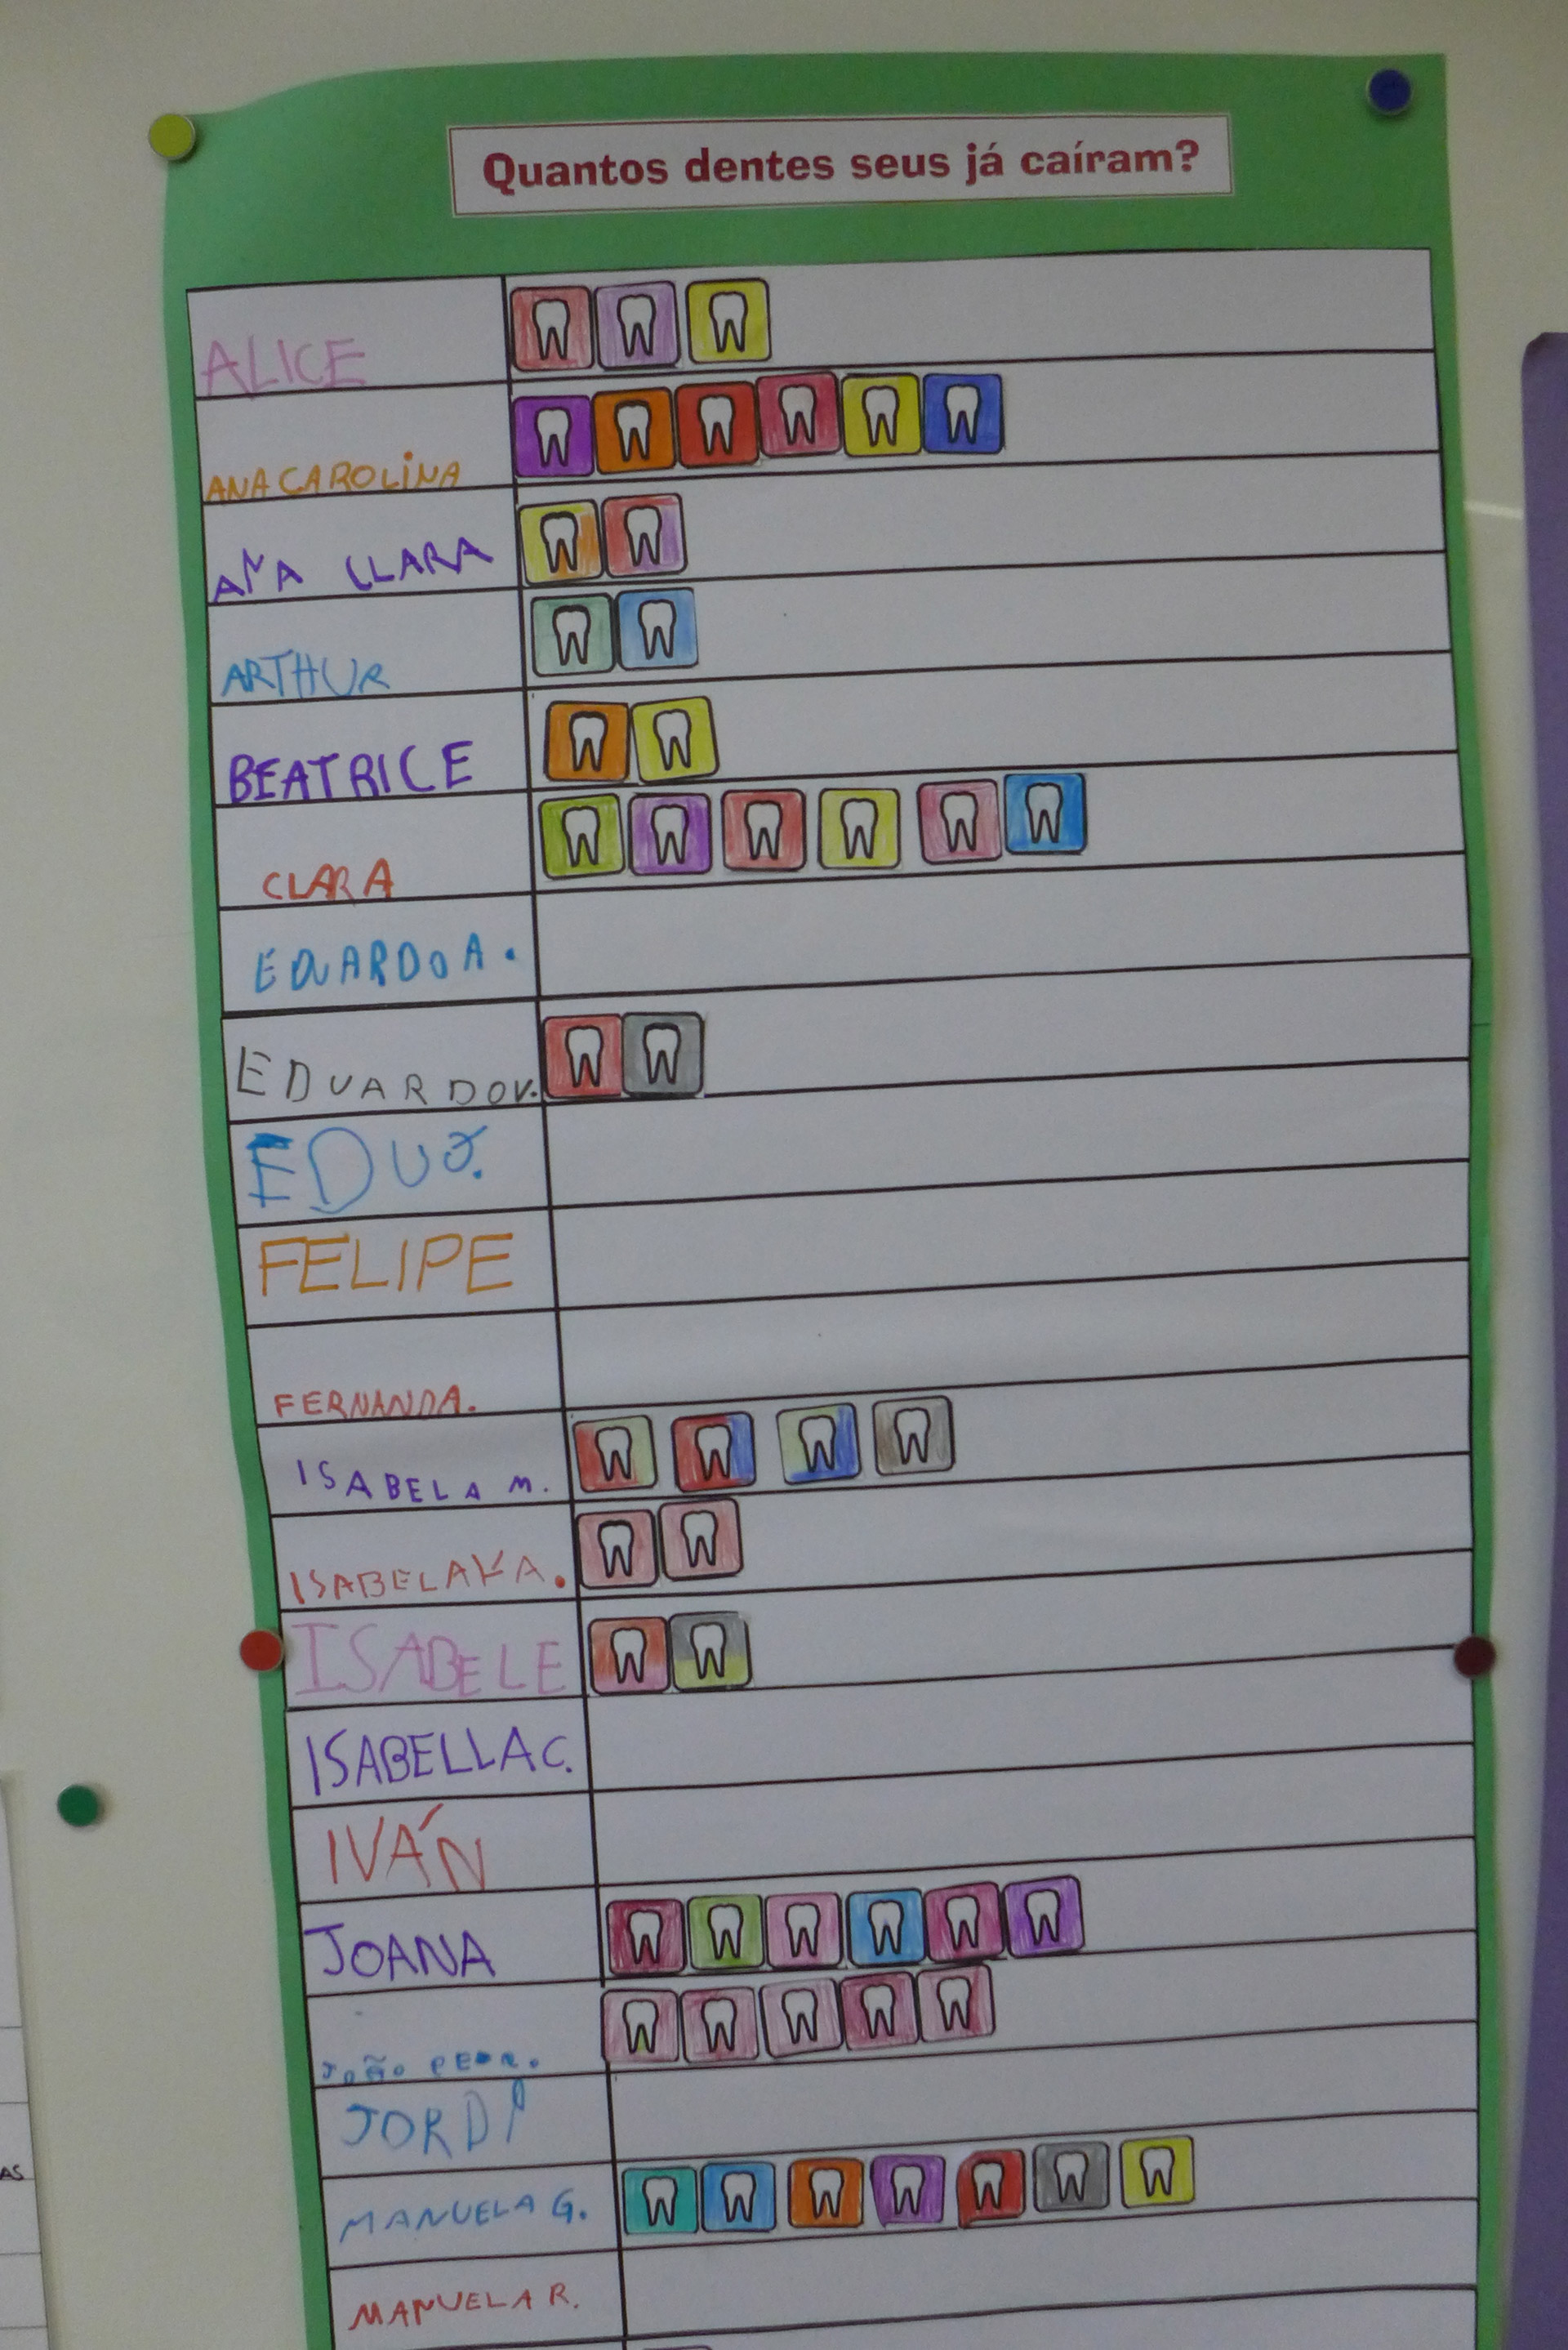 Quantos dentes seus já caíram?
ALICE
ANA CAROLINA
ANA CLARA
ARTHUR
BEATRICE
CLARA
EDUARDO A.
EDUARDO V.
EDU J.
FELIPE
FERNANDA.
ISABELA M.
ISABELA
ISABELE
ISABELLA C.
IVÁN
JOANA
JOÃO PEDR.
JORDI
MANUELA G.
AS
MANUELA R.